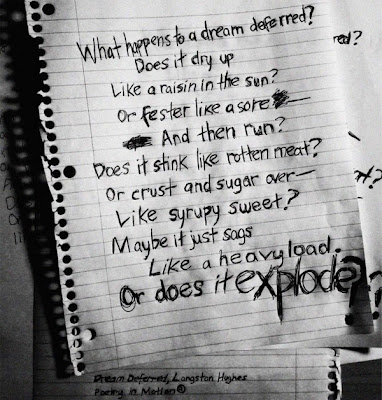 What happens to a dream deferred?
Does it dry up
Like a raisin in the sun?
Or fester like a sore—
And then run?
Does it stink like rotten meat?
Or crust and sugar over—
Like syrupy sweet?
Maybe it just sags
Like a heavy load.
Or does it explode?
red?
?
Dream Deferred, Langston Hughes
Poetry in Motion®